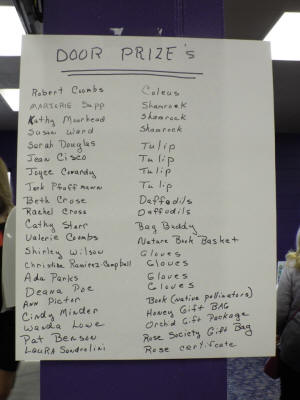 DOOR PRIZE's
Robert Coombs Coleus
MARJORIE Sapp Shamrock
Kathy Moorhead Shamrock
Susan Ward Shamrock
Sarah Douglas Tulip
Jean Cisco Tulip
Joyce Conardy Tulip
Terk Pfaffmann Tulip
Beth Crose Daffodils
Rachel Cross Daffodils
Cathy Starr Bag Buddy
Valerie Coombs Nature Book Basket
Shirley Wilson Gloves
Christina Ramirez-Campbell Gloves
Ada Parks Gloves
Deana Poe Gloves
Ann Pictor Book (Native pollinators)
Cindy Minder Honey Gift BAG
Wanda Lowe Orchid Gift Package
Pat Benson Rose Society Gift Bag
LAURA Sondrolini Rose certificate